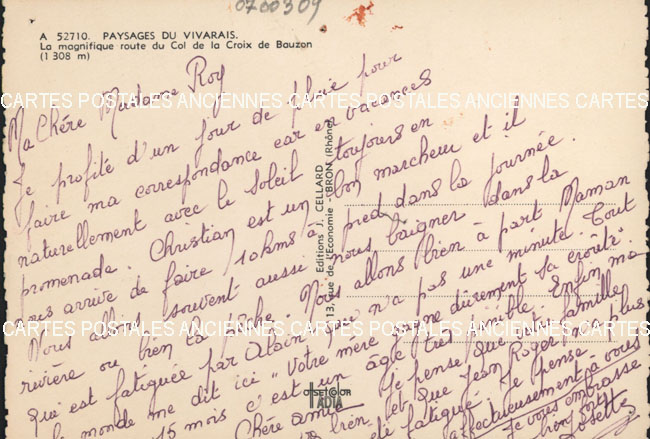 0700309
A 52710. PAYSAGES DU VIVARAIS.
La magnifique route du Col de la Croix de Bauzon
(1 308 m)
CARTES POSTALES ANCIENNES CARTES POSTALES ANCIENNES CARTES
Ma Chére Madame Roy
Je profite d'un jour de pluie pour
faire ma correspondance car en vacances
naturellement avec le soleil toujours en
promenade. Christian est un bon marcheur et il
nous arrive de faire 10 kms à pied dans la journée.
Nous allons souvent aussi nous baigner dans la
rivière ou bien la pêche. Nous allons bien à part Maman
qui est fatiguée par Alain qui n'a pas une minute. Tout
le monde me dit ici "Votre mère gagne dûrement sa croûte"
15 mois c'est un âge très pénible. Enfin ma
Chère amie je pense que votre famille
bien et que Jean Roger n'est plus
fatigué. Je pense
affectueusement à vous
Je vous embrasse
bien fort
Josette
Editions J. CELLARD
13, rue de l'Economie - BRON (Rhône)
CARTES POSTALES ANCIENNES CARTES POSTALES ANCIENNES CARTES
OFFSETCOLOR
IADIA